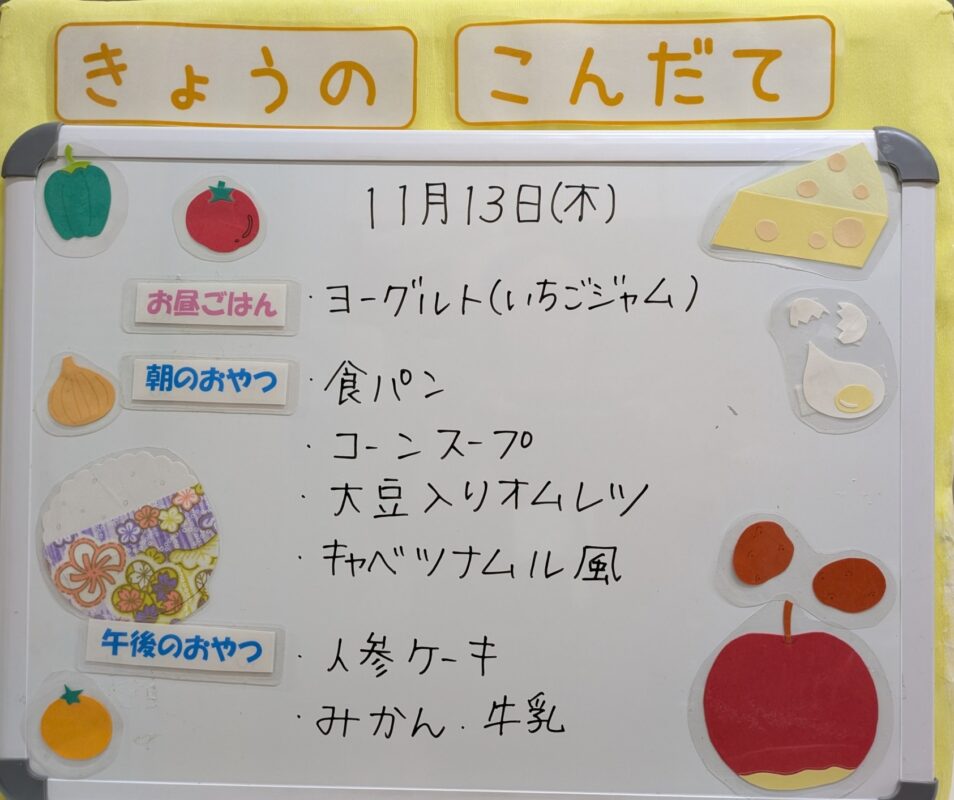 きょうの こんだて
11月13日(木)
お昼ごはん ・ヨーグルト(いちごジャム)
朝のおやつ ・食パン
・コーンスープ
・大豆入りオムレツ
・キャベツナムル風
午後のおやつ ・人参ケーキ
・みかん・牛乳